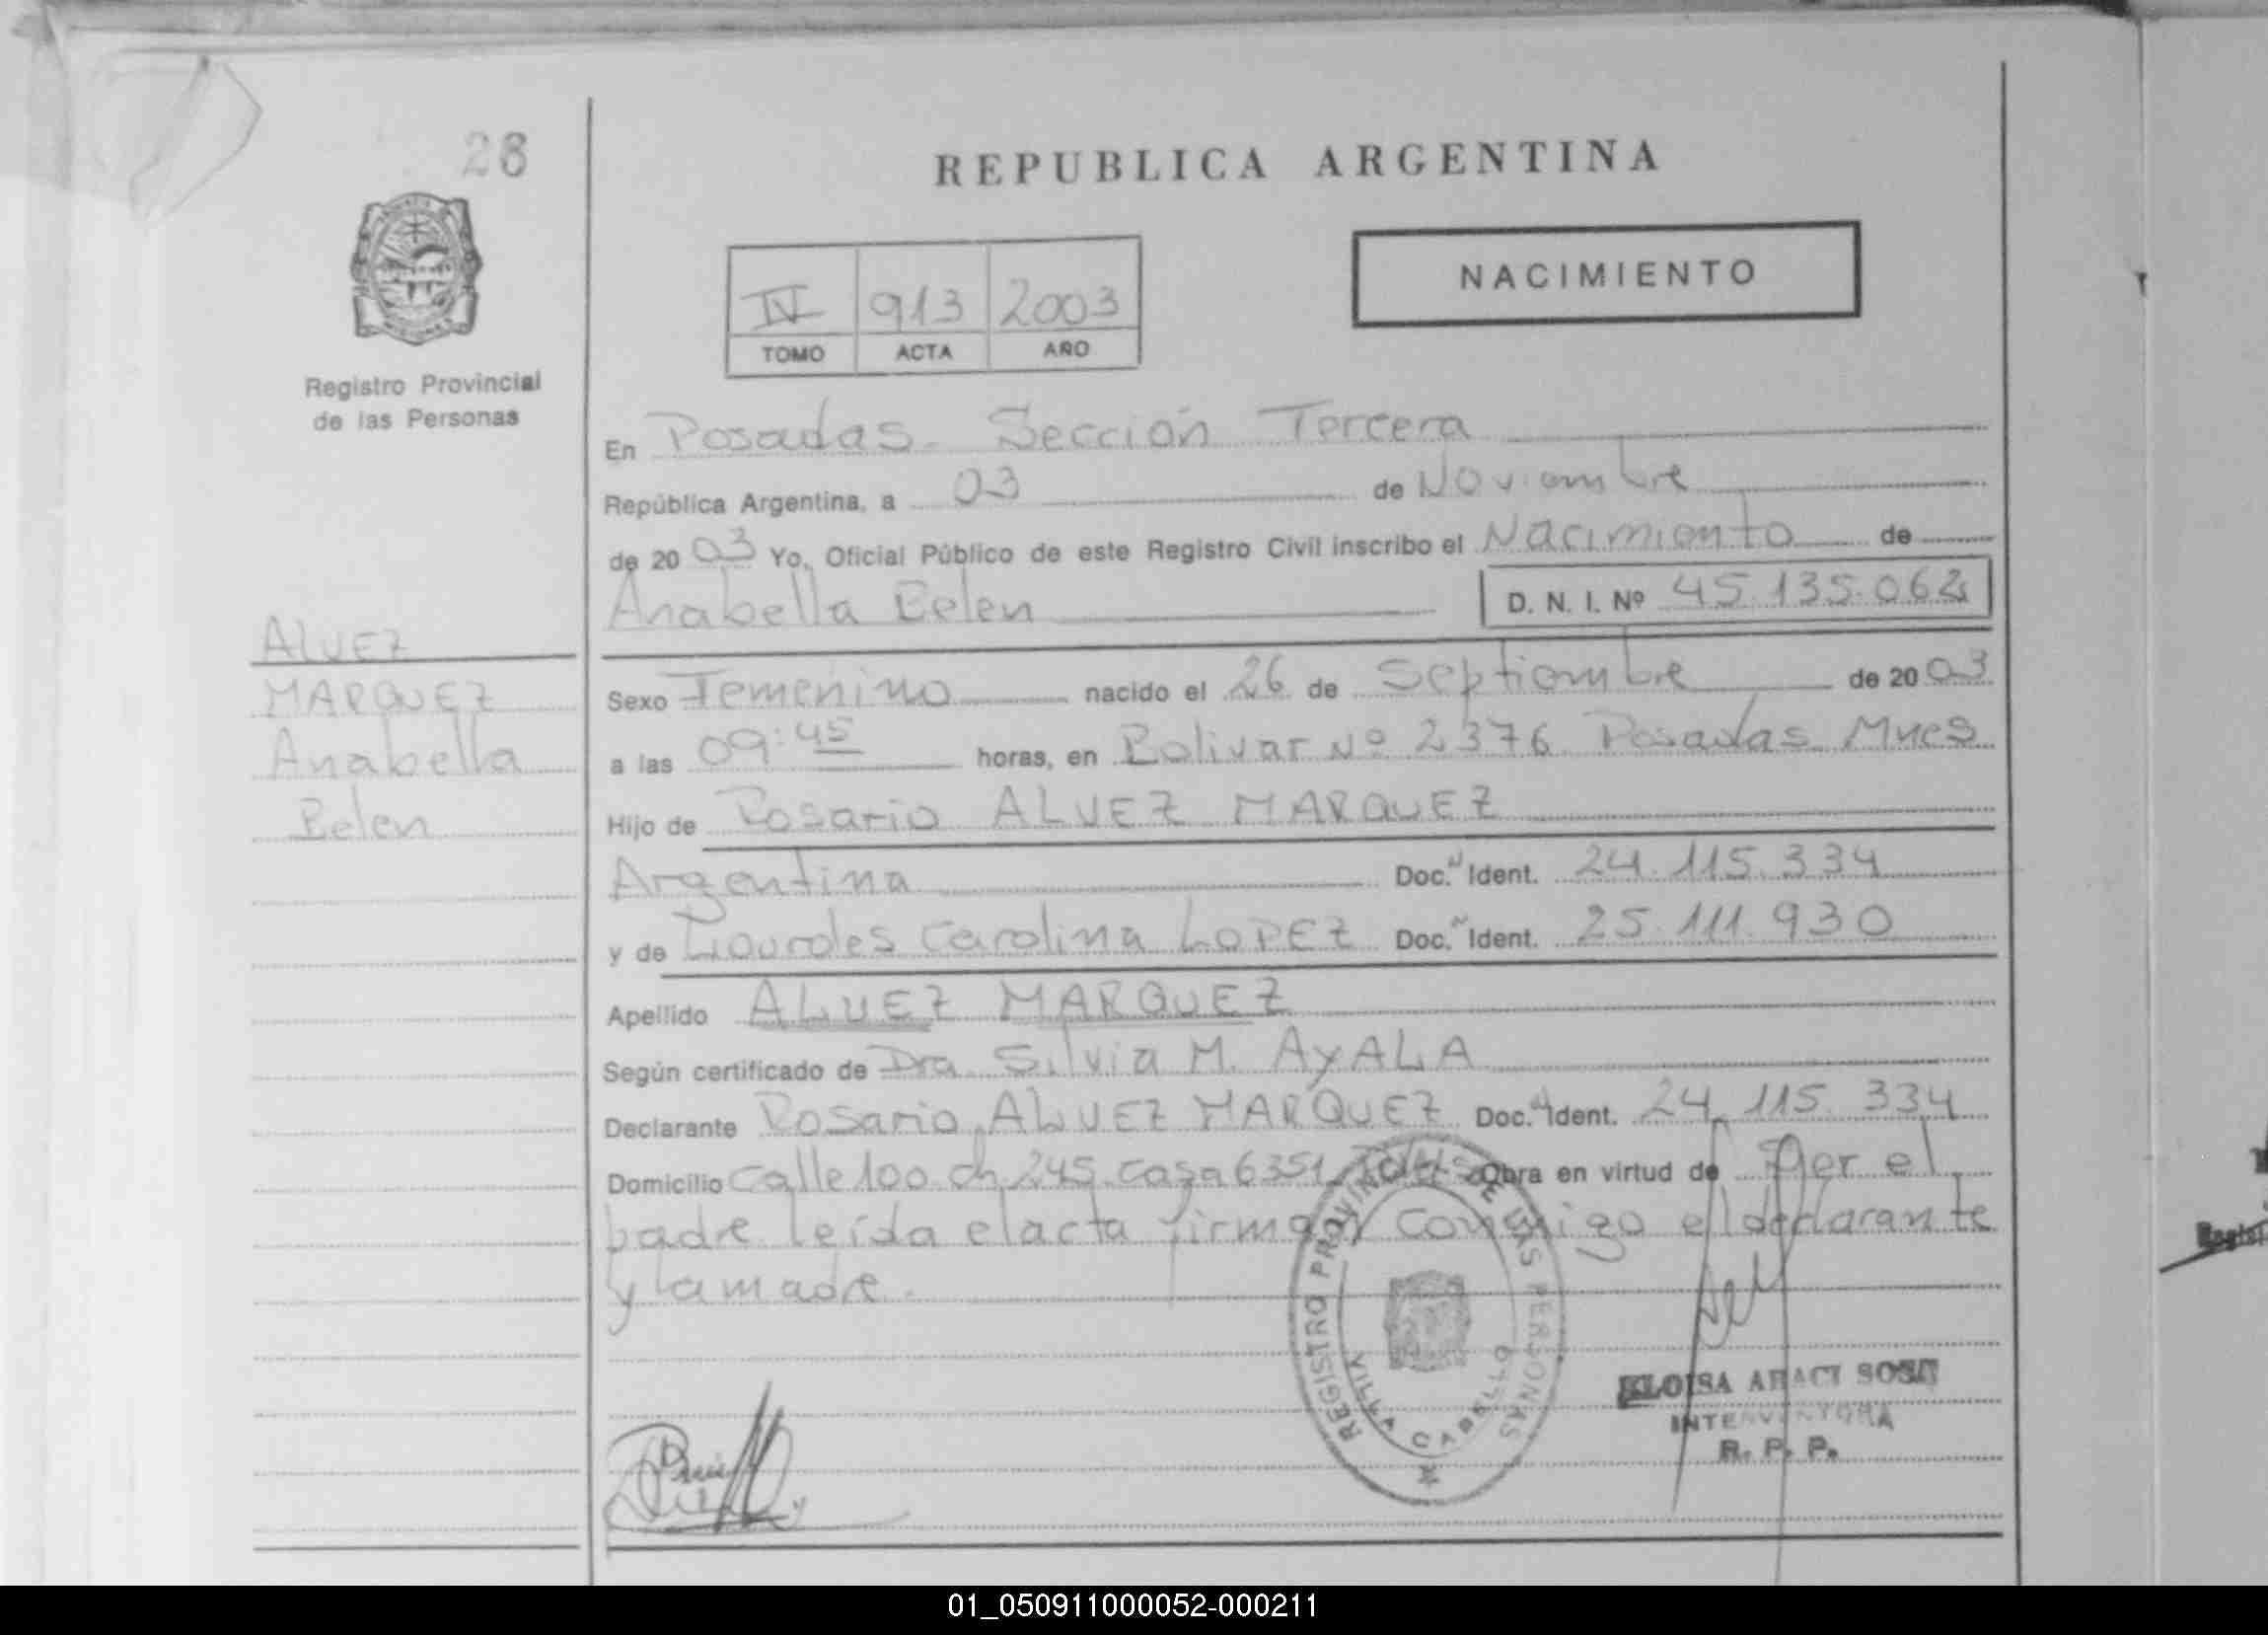 28
REPUBLICA ARGENTINA
NACIMIENTO
IV 913 2003
TOMO ACTA AÑO
Registro Provincial
de las Personas
En Posadas. Sección Tercera
República Argentina, a 03 de Noviembre
de 2003 Yo, Oficial Público de este Registro Civil inscribo el Nacimiento de
Anabella Belen D. N. I. Nº 45.135.062
ALVEZ
MARQUEZ
Anabella
Belen
Sexo Femenino nacido el 26 de Septiembre de 2003
a las 09:45 horas, en Bolivar Nº 2376 Posadas Mnes
Hijo de Rosario ALVEZ MARQUEZ
Argentina Doc. Ident. 24.115.334
y de Lourdes Carolina LOPEZ Doc. Ident. 25.111.930
Apellido ALVEZ MARQUEZ
Según certificado de Dra. Silvia M. AyALA
Declarante Rosario ALVEZ MARQUEZ Doc. Ident. 24.115.334
Domicilio Calle 100 ch 245 casa 6351 Obra en virtud de Ser el
padre leída el acta firman conmigo el declarante
y la madre.
REGISTRO PROVINCIAL DE LAS PERSONAS
VILLA CABELLO
ELOISA ARACI SOSA
INTERVENTORA
R. P. P.
01_050911000052-000211